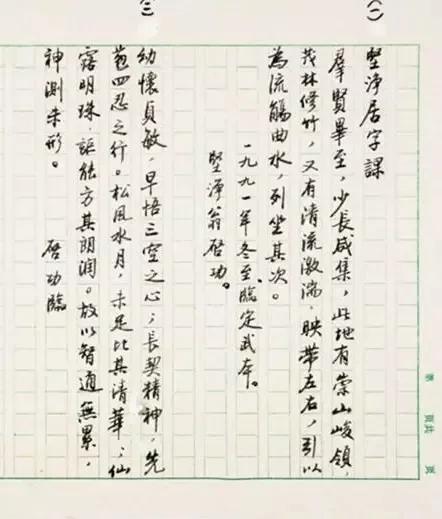 (一)
堅淨居字課
羣賢畢至，少長咸集，此地有崇山峻領，
茂林修竹，又有清流激湍，映帶左右，引以
為流觴曲水，列坐其次。
一九九一年冬至，臨定武本。
堅淨翁啓功。
(二)
幼懷貞敏，早悟三空之心；長契精神，先
苞四忍之行。松風水月，未足比其清華；仙
露明珠，詎能方其朗潤。故以智通無累，
神測未形。 啓功臨